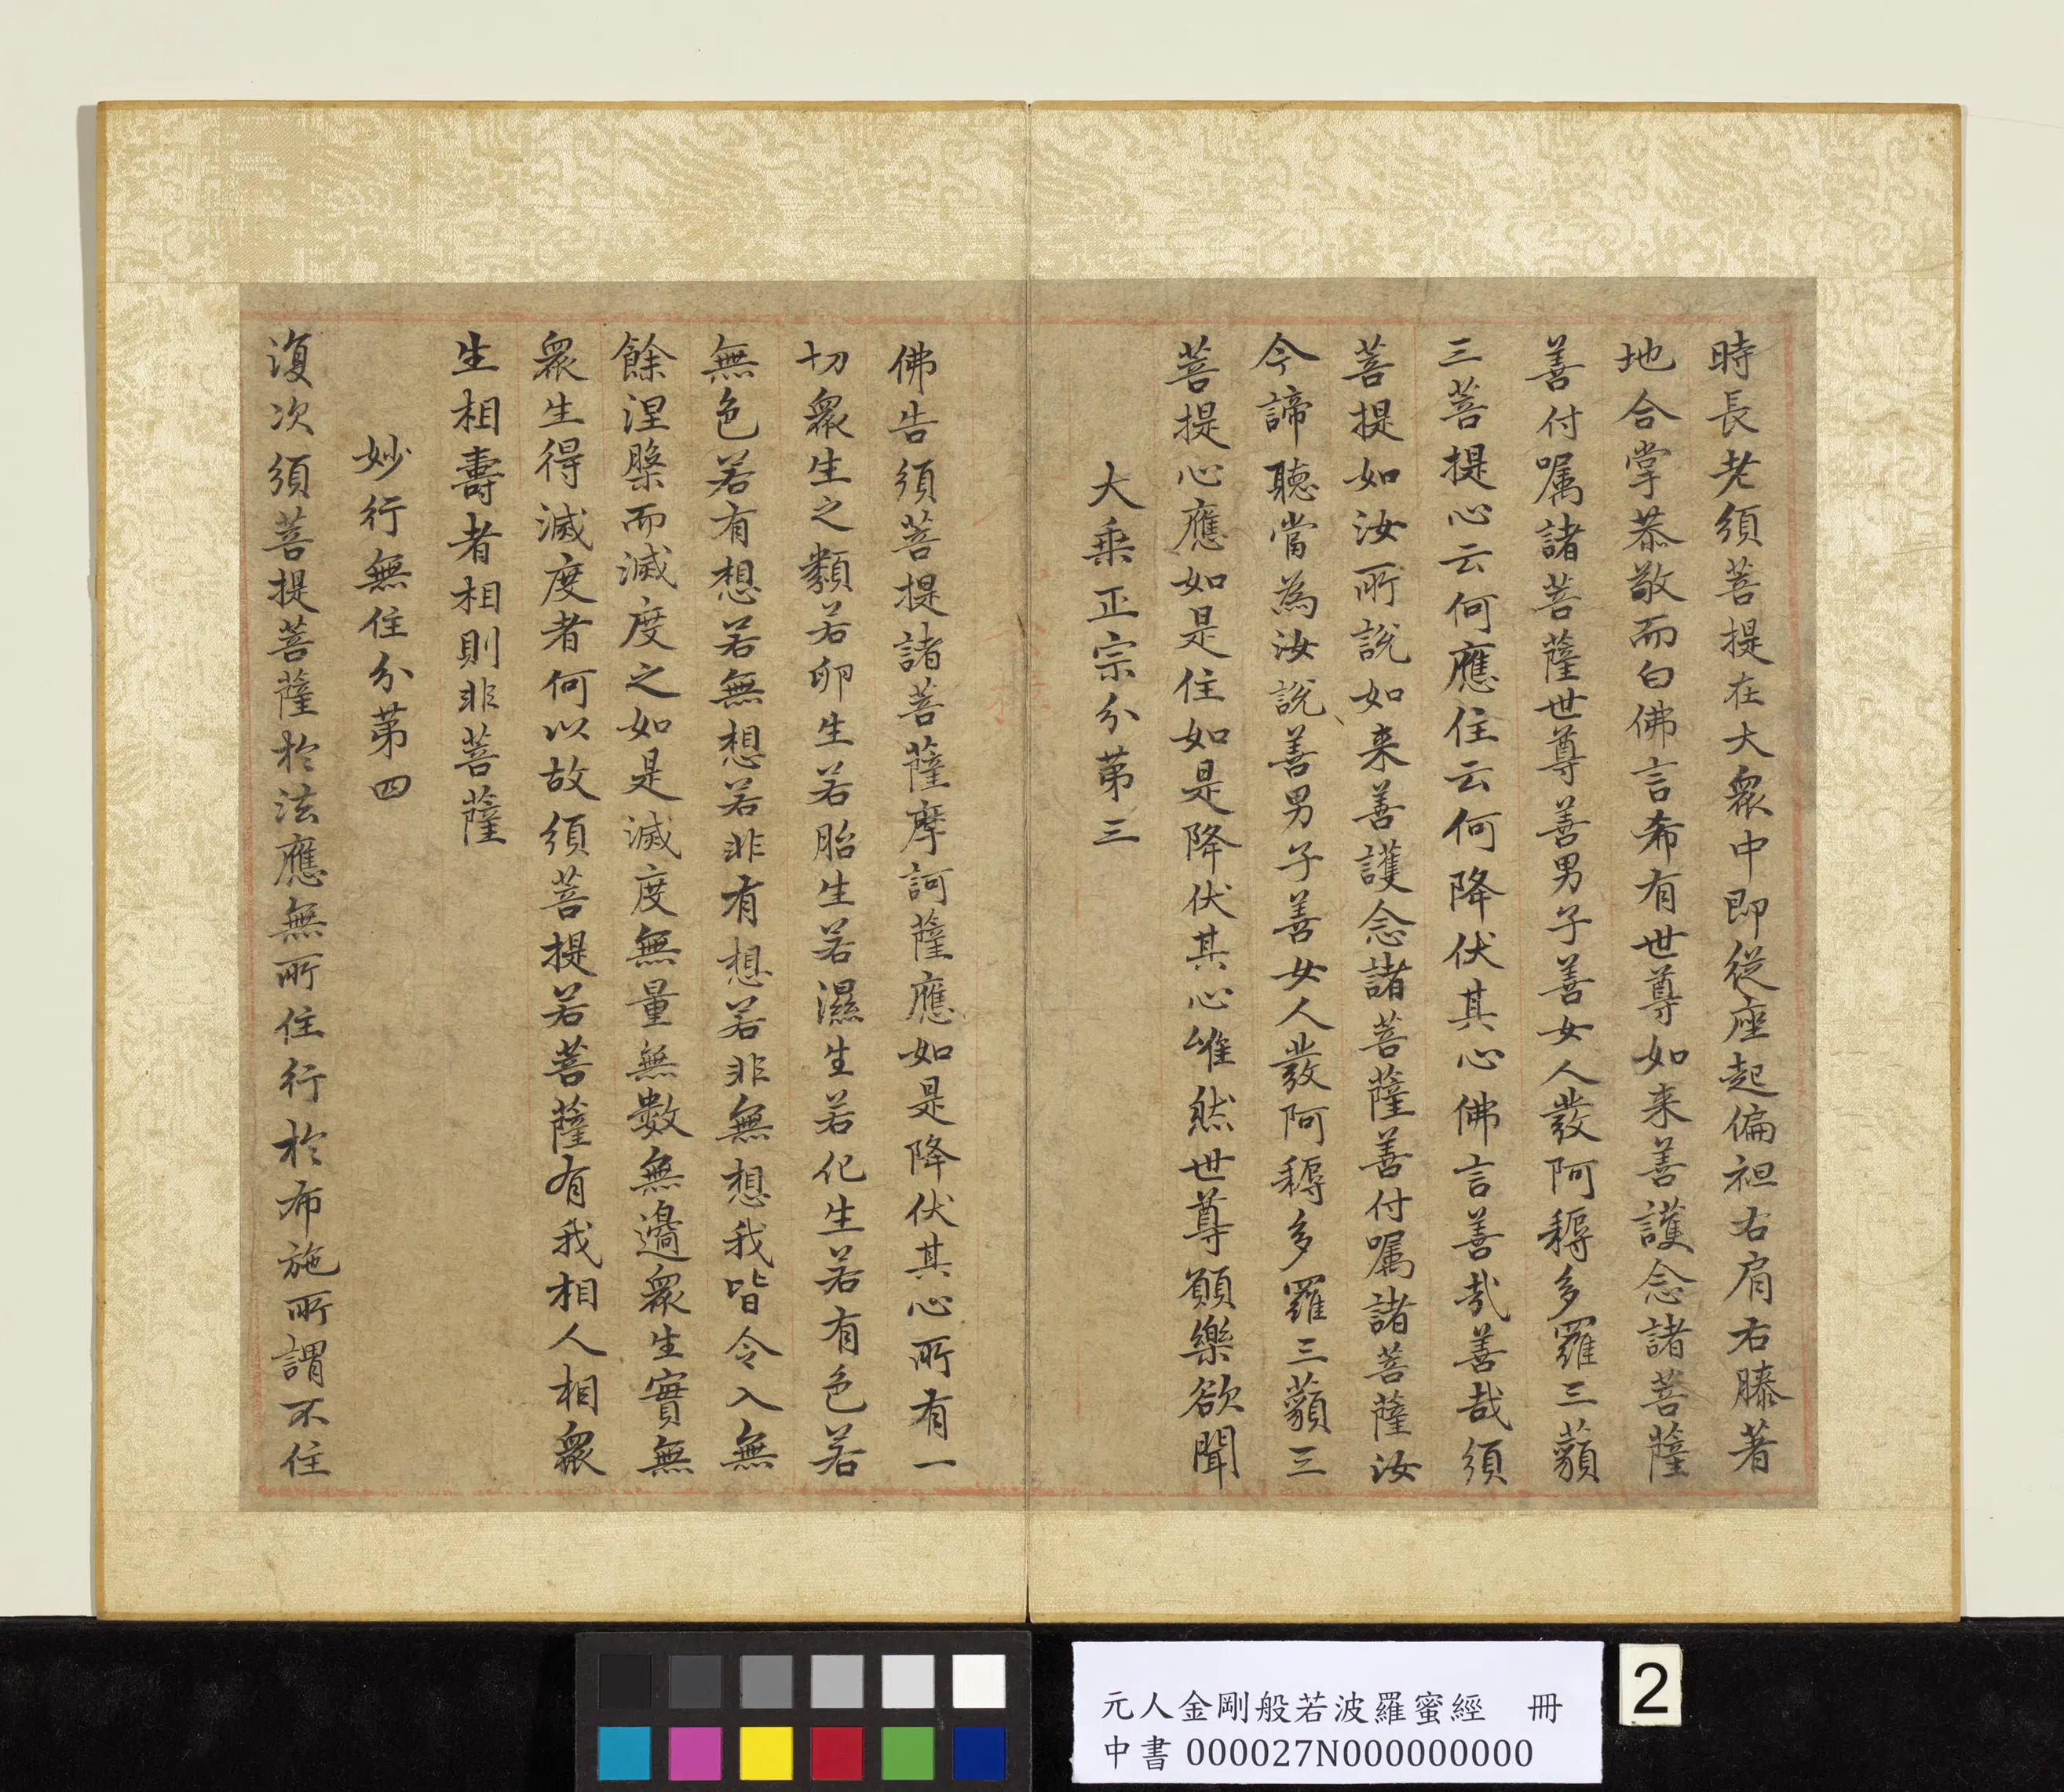 時長老須菩提在大眾中即從座起偏袒右肩右膝著
地合掌恭敬而白佛言希有世尊如来善護念諸菩薩
善付嘱諸菩薩世尊善男子善女人發阿耨多羅三藐
三菩提心云何應住云何降伏其心佛言善哉善哉須
菩提如汝所說如来善護念諸菩薩善付嘱諸菩薩汝
今諦聽當為汝說善男子善女人發阿耨多羅三藐三
菩提心應如是住如是降伏其心唯然世尊願樂欲聞
大乗正宗分第三
佛告須菩提諸菩薩摩訶薩應如是降伏其心所有一
切眾生之類若卵生若胎生若濕生若化生若有色若
無色若有想若無想若非有想若非無想我皆令入無
餘涅槃而滅度之如是滅度無量無數無邊眾生實無
眾生得滅度者何以故須菩提若菩薩有我相人相眾
生相壽者相則非菩薩
妙行無住分第四
復次須菩提菩薩於法應無所住行於布施所謂不住
元人金剛般若波羅蜜經 冊
中書 000027N000000000
2